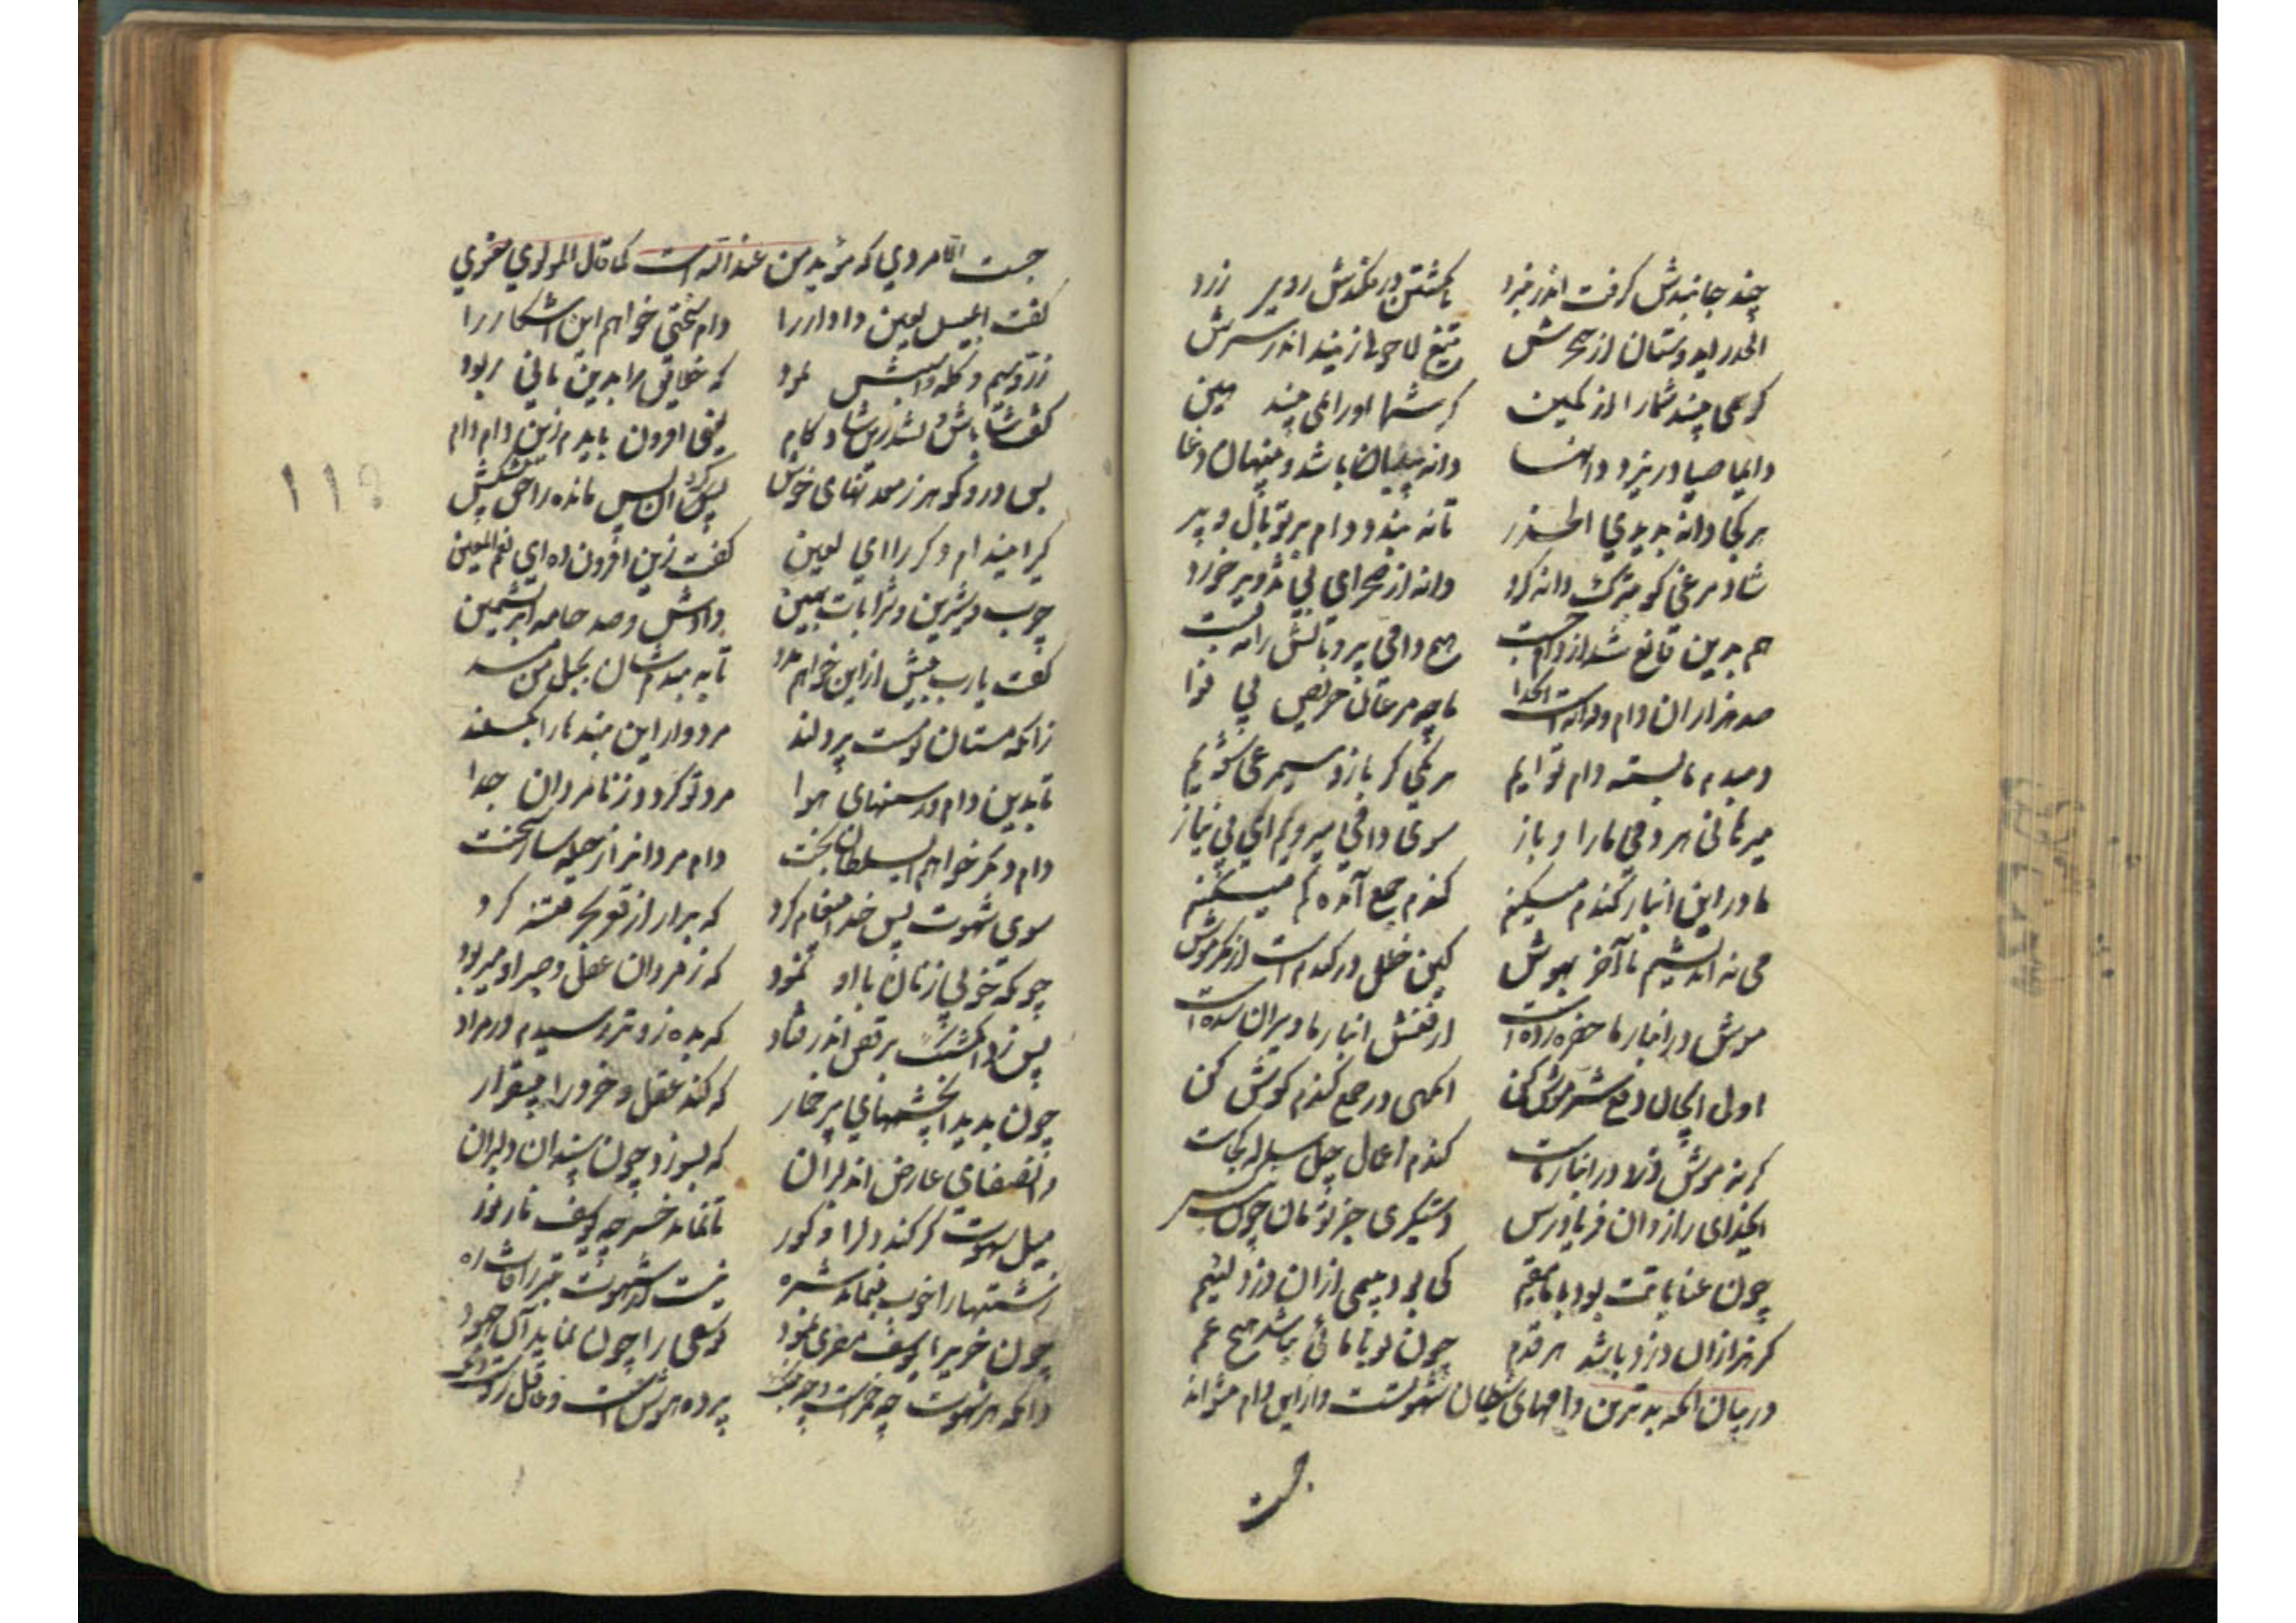 چند جانبدش گرفت اندر نبرد تا بکشتن در فکندش روی زرد
الحذر ای دوستان از حجرش تیغ لا حولا زنید اندر سرش
گر همی بیند شما را از کمین کر شما او را همی بیند مبین
دایما صیاد ریزد دانها دانه پیدا باشد و پنهان دغا
هر کجا دانه بدیدی الحذر تا نه بندد دام بر تو بال و پر
شاد مرغی کو بترک دانه کرد دانه از صحرای بی تزویر خورد
هم بدین قانع شد از دام بجست هیچ دامی پر و بالش را نبست
صد هزاران دام و دانه است ای خدا ما چو مرغان حریص بی نوا
دمبدم ما بسته دام توایم هر یکی گر باز و سیمرغی شویم
میرهانی هر دمی ما را و باز سوی دامی میرویم ای بی نیاز
ما در این انبار گندم میکنیم گندم جمع آمده گم میکنیم
می نه اندیشیم ما آخر بهوش کین خلل در گندم است از مکر موش
موش در انبار ما حفره زده است از فنش انبار ما ویران شده است
اول ایجان دفع شر موش کن انگهی در جمع گندم کوش کن
گر نه موش دزد در انبار ماست گندم اعمال چل ساله کجاست
ایخدای رازدان فریادرس دستگیری جز تو مان چون نیست کس
چون عنایاتت بود با ما مقیم کی بود بیمی ازان دزد لئیم
گر هزاران دزد باشد هر قدم چون تو با مائی نباشد هیچ غم
در بیان انکه بدترین دامهای شیطان شهوتست و از این دام نتواند
جست
جست الا مردی که مؤید من عند الله است کما قال المولوی معنوی
گفت ابلیس لعین دادار را دام سختی خواهم این اشکار را
زر و سیم و گله اسپش نمود که خلایق را بدین تانی ربود
گفت شاباش و بشد زین شادکام گفت افزون بایدم زین دام دام
پس در و گوهر ز معدنهای خوش پس کرد آن پس مانده را حق پیش کش
گیر اینم دام دگر را ای لعین گفت زین افزون ده ای نعم المعین
چرب و شیرین و شرابات ثمین دادش و صد جامه ابریشمین
گفت یارب بیش ازین خواهم مدد تا به بندمشان بحبل من مسد
زانکه مستان تو که پر دلند مردوار این بندها را بگسلند
تا بدین دام و رسنهای هوا مرد تو گردد ز نامردان جدا
دام دگر خواهم ای سلطان بخت دام مرد انداز حیله ساز سخت
سوی شهوت پس خدا پیغام کرد که برار از قعر بحر فتنه گرد
چونکه خوبی زنان با او نمود که ز مردان عقل و صبر او میربود
پس زد انگشتک برقص اندر فتاد که بده زوتر رسیدم در مراد
چون بدید آن چشمهای پر خمار که کند عقل و خرد را بیقرار
وان صفای عارض ان دلبران که بسوزد چون سپندان دلبران
میل شهوت کر کند دل را و کور تا نماید خر چو یوسف نار نور
زشتها را خوب بنماید شره نیست از شهوت بتر ز آفات ره
چون خری را یوسف مصری نمود یوسفی را چون نماید آن جهود
دانکه هر شهوت چو خمرست و چو بنگ پرده هوش است و عاقل زوست دنگ
۱۱۹